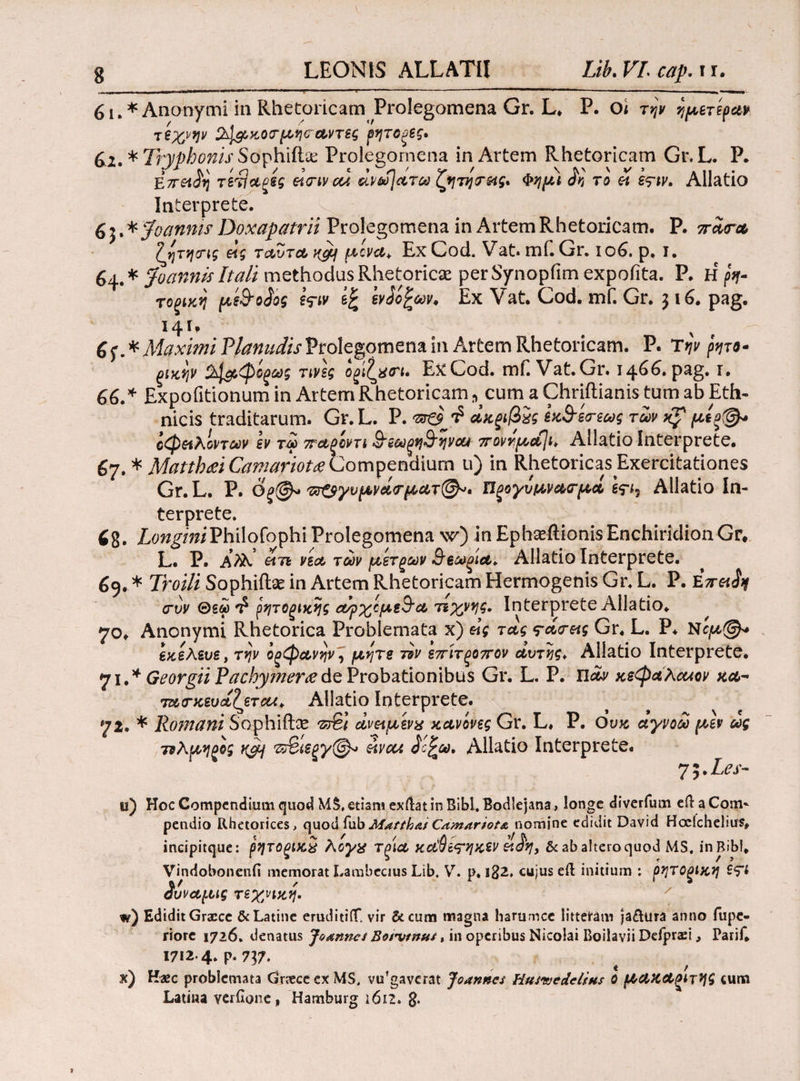 8 LEONIS ALLATII Lib. VI. cap. 11.
61. * Anonymi in Rhetoricam Prolegomena Gr. L. P. Οἱ τὴν ἡμετέραν
τέχνην διακοσμήσαντες ῥήτορες.
62. * Tryphonis Sophistæ Prolegomena in Artem Rhetoricam Gr. L. P.
Ἐπειδὴ τέτταρές εἰσιν αἱ ἀνωτάτω ζητήσεις. Φημὶ δὴ τὸ εἰ ἔςιν. Allatio
Interprete.
63. * Joannis Doxapatrii Prolegomena in Artem Rhetoricam. P. πᾶσα
ζήτησις εἰς ταῦτα καὶ μόνα. Ex Cod. Vat. mſ. Gr. 106. p. 1.
64. * Joannis Itali methodus Rhetoricæ per Synopſim expoſita. P. Η ῥη-
τορικὴ μέθοδός ἐςιν ἐξ ἐνδόξων. Ex Vat. Cod. mſ. Gr. 316. pag.
141.
65. * Maximi Planudis Prolegomena in Artem Rhetoricam. P. Τὴν ῥητο-
ρικὴν διαφόρως τινὲς ὁρίζουσι. Ex Cod. mſ. Vat. Gr. 1466. pag. 1.
66. * Expoſitionum in Artem Rhetoricam, cum a Chriſtianis tum ab Eth-
nicis traditarum. Gr. L. P. πρὸ τῆς ἀκριβοῦς ἐκθέσεως τῶν κατὰ μέρος
ὀφειλόντων ἐν τῷ παρόντι θεωρηθῆναι πονήματι. Allatio Interprete.
67. * Matthæi Camariotæ Compendium u) in Rhetoricas Exercitationes
Gr. L. P. Ὅρος προγυμνάσματος. Προγύμνασμά ἐςι, Allatio In-
terprete.
68. Longini Philoſophi Prolegomena w) in Ephæſtionis Enchiridion Gr.
L. P. Ἀλλ' εἴτε νέα τῶν μέτρων θεωρία. Allatio Interprete.
69. * Troili Sophiſtæ in Artem Rhetoricam Hermogenis Gr. L. P. Ἐπειδὴ
σὺν Θεῷ τῆς ῥητορικῆς ἀρχόμεθα τέχνης. Interprete Allatio.
70. Anonymi Rhetorica Problemata x) εἰς τὰς ςάσεις Gr. L. P. Νόμος
ἐκέλευε, τὴν ὀρφανὴν, μήτε τὸν ἐπίτροπον αὐτῆς. Allatio Interprete.
71. * Georgii Pachymeræ de Probationibus Gr. L. P. Πᾶν κεφάλαιον κα-
τασκευάζεται. Allatio Interprete.
72. * Romani Sophiſtæ περὶ ἀνειμένου κανόνες Gr. L. P. Οὐκ ἀγνοῶ μὲν ὡς
τολμηρὸς καὶ περίεργος εἶναι δόξω. Allatio Interprete.
73. Les-
u) Hoc Compendium quod MS. etiam exſtat in Bibl. Bodlejana, longe diverſum eſt a Com-
pendio Rhetorices, quod ſub Matthæi Camariotæ nomine edidit David Hœſchelius,
incipitque: ῥητορικοῦ λόγου τρία καθέςηκεν εἴδη, & ab altero quod MS. in Bibl.
Vindobonenſi memorat Lambecius Lib. V. p. 182. cujus eſt initium: ῥητορικὴ ἐςι
δύναμις τεχνική.
w) Edidit Græce & Latine eruditiſſ. vir & cum magna harumce litterarum jactura anno ſupe-
riore 1726. denatus Joannes Boivinus, in operibus Nicolai Boilavii Deſpræi, Pariſ.
1712. 4. p. 737.
x) Hæc problemata Græce ex MS. vulgaverat Joannes Huswedelius ὁ μακαρίτης cum
Latina verſione, Hamburg 1612. 8.